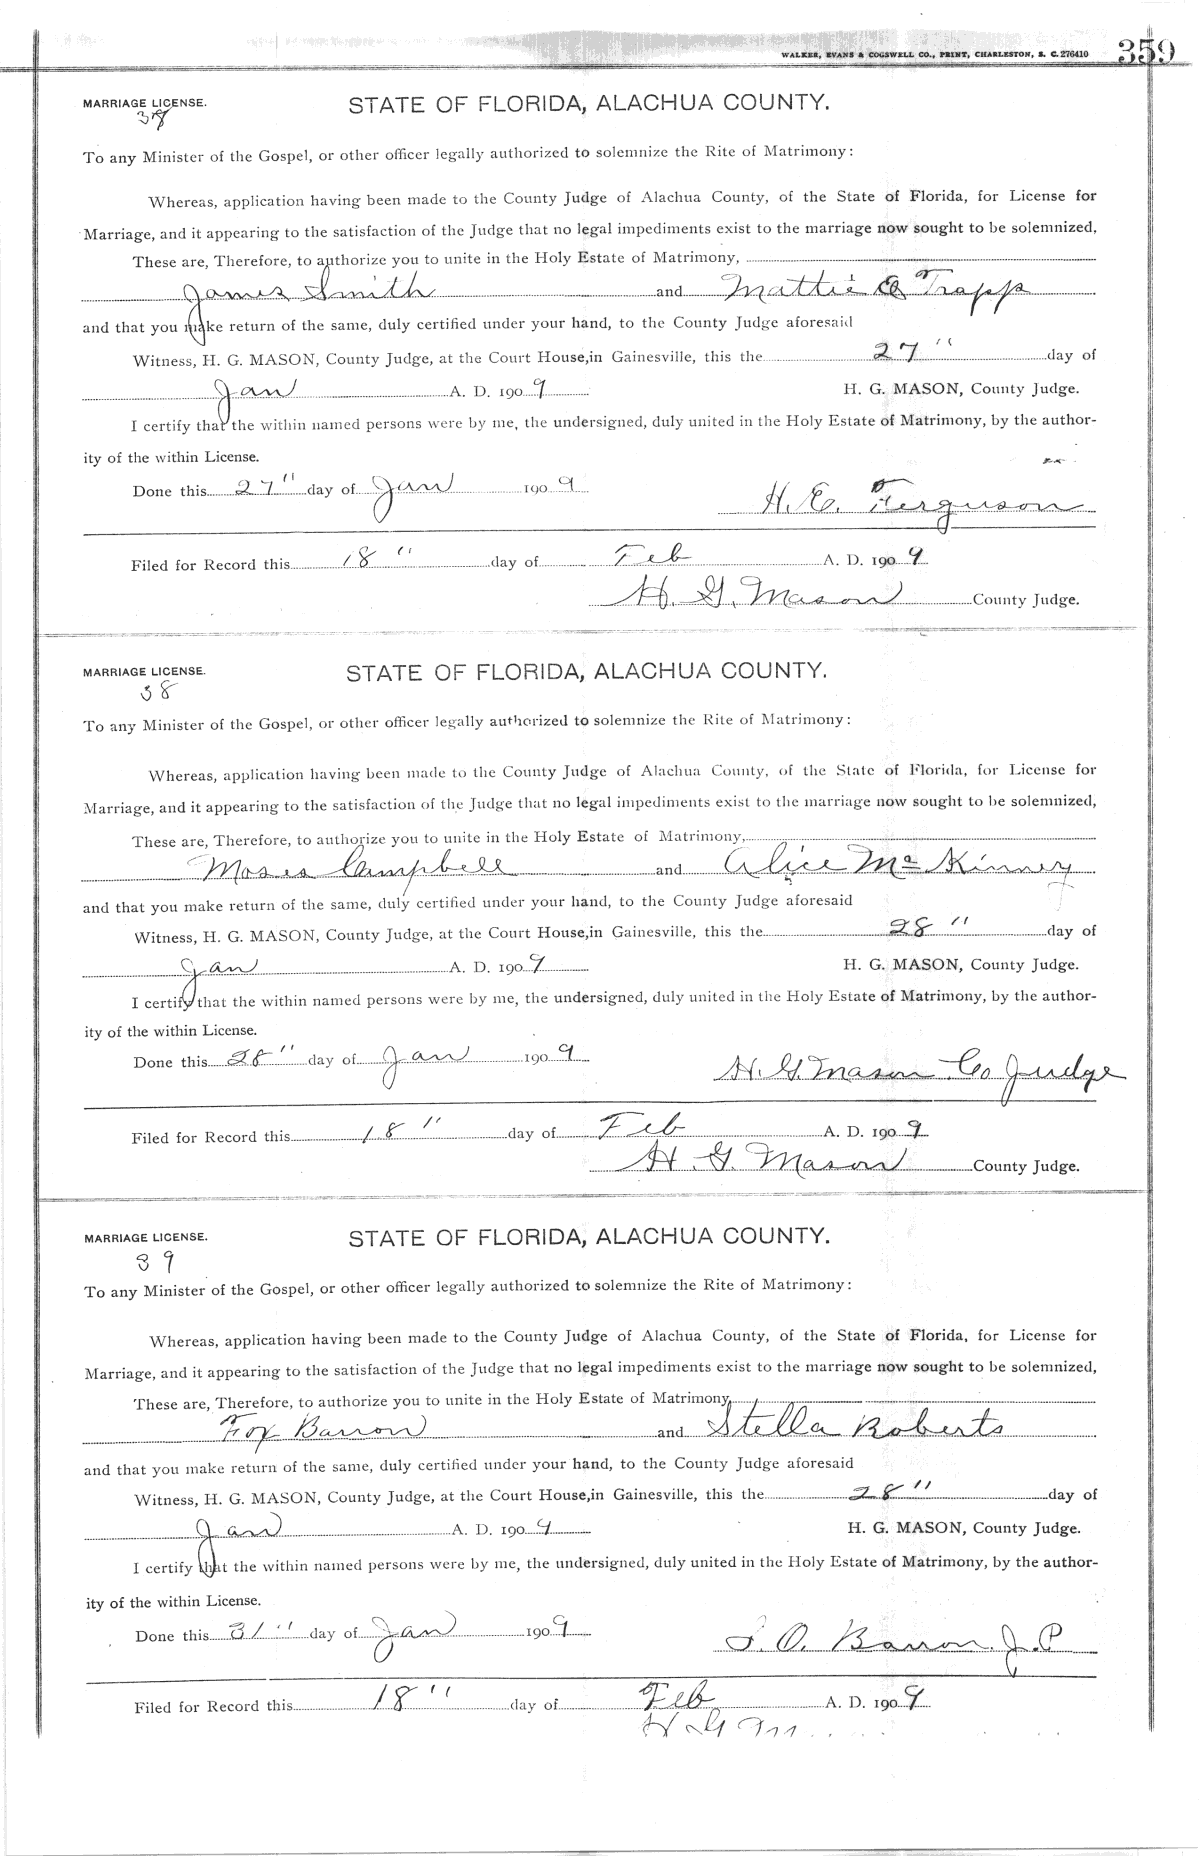 WALKER, EVANS & COGSWELL CO., PRINT, CHARLESTON, S. C. 276410 359
MARRIAGE LICENSE. STATE OF FLORIDA, ALACHUA COUNTY.
To any Minister of the Gospel, or other officer legally authorized to solemnize the Rite of Matrimony:
Whereas, application having been made to the County Judge of Alachua County, of the State of Florida, for License for
Marriage, and it appearing to the satisfaction of the Judge that no legal impediments exist to the marriage now sought to be solemnized,
These are, Therefore, to authorize you to unite in the Holy Estate of Matrimony,
James Smith and Mattie Trapp
and that you make return of the same, duly certified under your hand, to the County Judge aforesaid
Witness, H. G. MASON, County Judge, at the Court House, in Gainesville, this the 27" day of
Jan A. D. 1909 H. G. MASON, County Judge.
I certify that the within named persons were by me, the undersigned, duly united in the Holy Estate of Matrimony, by the author-
ity of the within License.
Done this 27" day of Jan 1909
H. E. Ferguson
Filed for Record this 18" day of Feb A. D. 1909
H. G. Mason County Judge.
MARRIAGE LICENSE. STATE OF FLORIDA, ALACHUA COUNTY.
38
To any Minister of the Gospel, or other officer legally authorized to solemnize the Rite of Matrimony:
Whereas, application having been made to the County Judge of Alachua County, of the State of Florida, for License for
Marriage, and it appearing to the satisfaction of the Judge that no legal impediments exist to the marriage now sought to be solemnized,
These are, Therefore, to authorize you to unite in the Holy Estate of Matrimony,
Moses Campbell and Alice McKinney
and that you make return of the same, duly certified under your hand, to the County Judge aforesaid
Witness, H. G. MASON, County Judge, at the Court House, in Gainesville, this the 28" day of
Jan A. D. 1909 H. G. MASON, County Judge.
I certify that the within named persons were by me, the undersigned, duly united in the Holy Estate of Matrimony, by the author-
ity of the within License.
Done this 28" day of Jan 1909
H. G. Mason Co Judge
Filed for Record this 18" day of Feb A. D. 1909
H. G. Mason County Judge.
MARRIAGE LICENSE. STATE OF FLORIDA, ALACHUA COUNTY.
39
To any Minister of the Gospel, or other officer legally authorized to solemnize the Rite of Matrimony:
Whereas, application having been made to the County Judge of Alachua County, of the State of Florida, for License for
Marriage, and it appearing to the satisfaction of the Judge that no legal impediments exist to the marriage now sought to be solemnized,
These are, Therefore, to authorize you to unite in the Holy Estate of Matrimony,
Fox Barron and Stella Roberts
and that you make return of the same, duly certified under your hand, to the County Judge aforesaid
Witness, H. G. MASON, County Judge, at the Court House, in Gainesville, this the 28" day of
Jan A. D. 1909 H. G. MASON, County Judge.
I certify that the within named persons were by me, the undersigned, duly united in the Holy Estate of Matrimony, by the author-
ity of the within License.
Done this 31" day of Jan 1909
O. Barron J. P
Filed for Record this 18" day of Feb A. D. 1909
H G